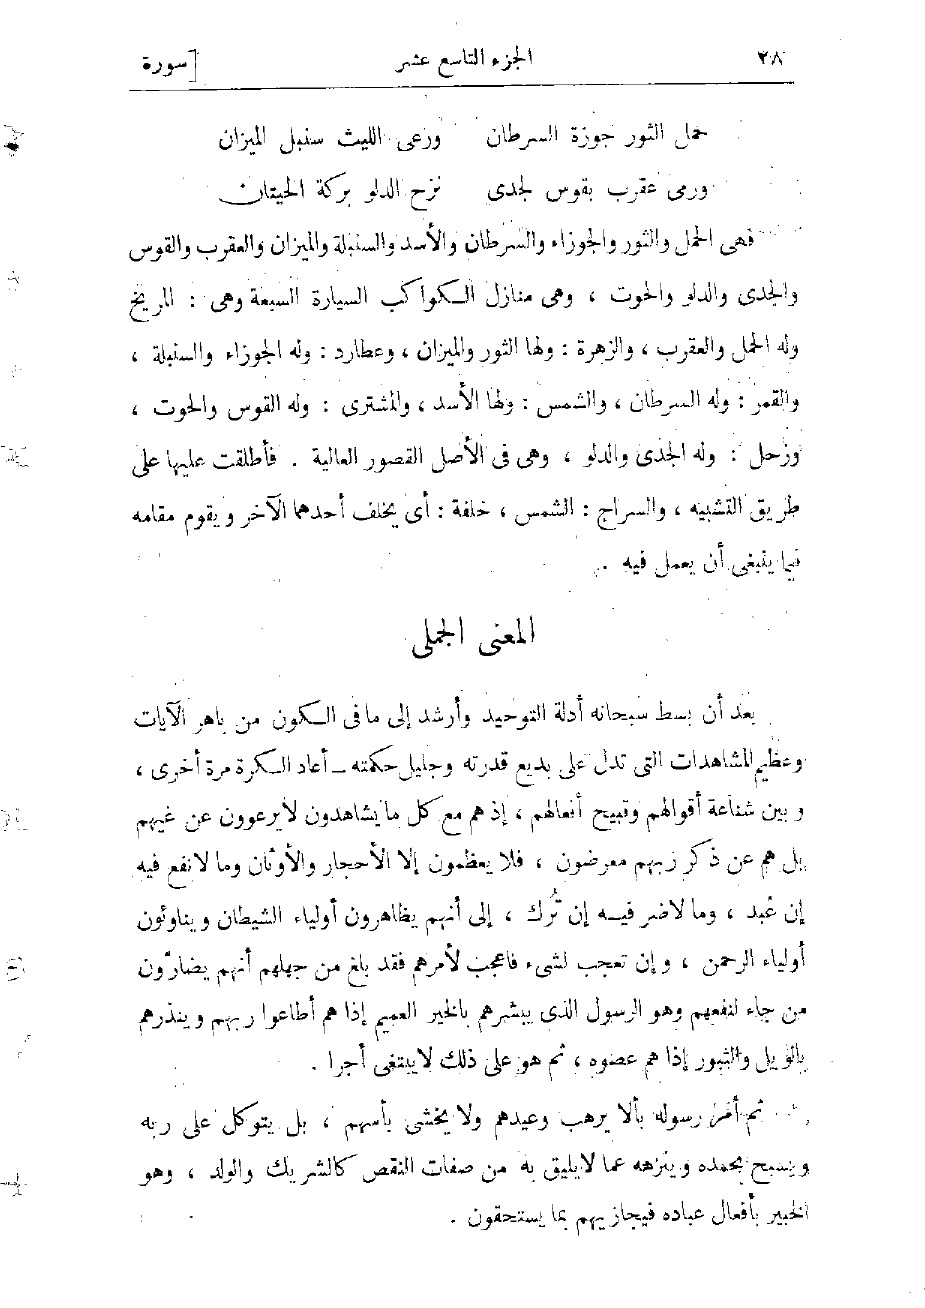 ٢٨ الجزء التاسع عشر [سورة
حمل الثور جوزة السرطان ورعى الليث سنبل الميزان
ورمى عقرب بقوس لجدى نزح الدلو بركة الحيتان
فهى الحمل والثور والجوزاء والسرطان والأسد والسنبلة والميزان والعقرب والقوس
والجدى والدلو والحوت ، وهى منازل الكواكب السيارة السبعة وهى : المريخ
وله الحمل والعقرب ، والزهرة : ولها الثور والميزان ، وعطارد : وله الجوزاء والسنبلة ،
والقمر : وله السرطان ، والشمس : ولها الأسد ، والمشترى : وله القوس والحوت ،
وزحل : وله الجدى والدلو ، وهى فى الأصل القصور العالية . فأطلقت عليها على
طريق التشبيه ، والسراج : الشمس ، خلفة : أى يخلف أحدهما الآخر ويقوم مقامه
فيما ينبغى أن يعمل فيه .
المعنى الجملى
بعد أن بسط سبحانه أدلة التوحيد وأرشد إلى ما فى الكون من باهر الآيات
وعظيم المشاهدات التى تدل على بديع قدرته وجليل حكمته ــ أعاد الكرة مرة أخرى ،
وبين شناعة أقوالهم وقبيح أفعالهم ، إذ هم مع كل ما يشاهدون لا يرعوون عن غيهم
بل هم عن ذكر ربهم معرضون ، فلا يعظمون إلا الأحجار والأوثان وما لا نفع فيه
إن عُبد ، وما لا ضر فيه إن تُرك ، إلى أنهم يظاهرون أولياء الشيطان ويناوئون
أولياء الرحمن ، وإن تعجب لشىء فاعجب لأمرهم فقد بلغ من جهلهم أنهم يضارّون
من جاء لنفعهم وهو الرسول الذى يبشرهم بالخير العميم إذا هم أطاعوا ربهم وينذرهم
بالويل والثبور إذا هم عصوه ، ثم هو على ذلك لا يبتغى أجرا .
ثم أمر رسوله بألا يرهب وعيدهم ولا يخشى بأسهم ، بل يتوكل على ربه
ويسبح بحمده وينزهه عما لا يليق به من صفات النقص كالشريك والولد ، وهو
الخبير بأفعال عباده فيجازيهم بما يستحقون .